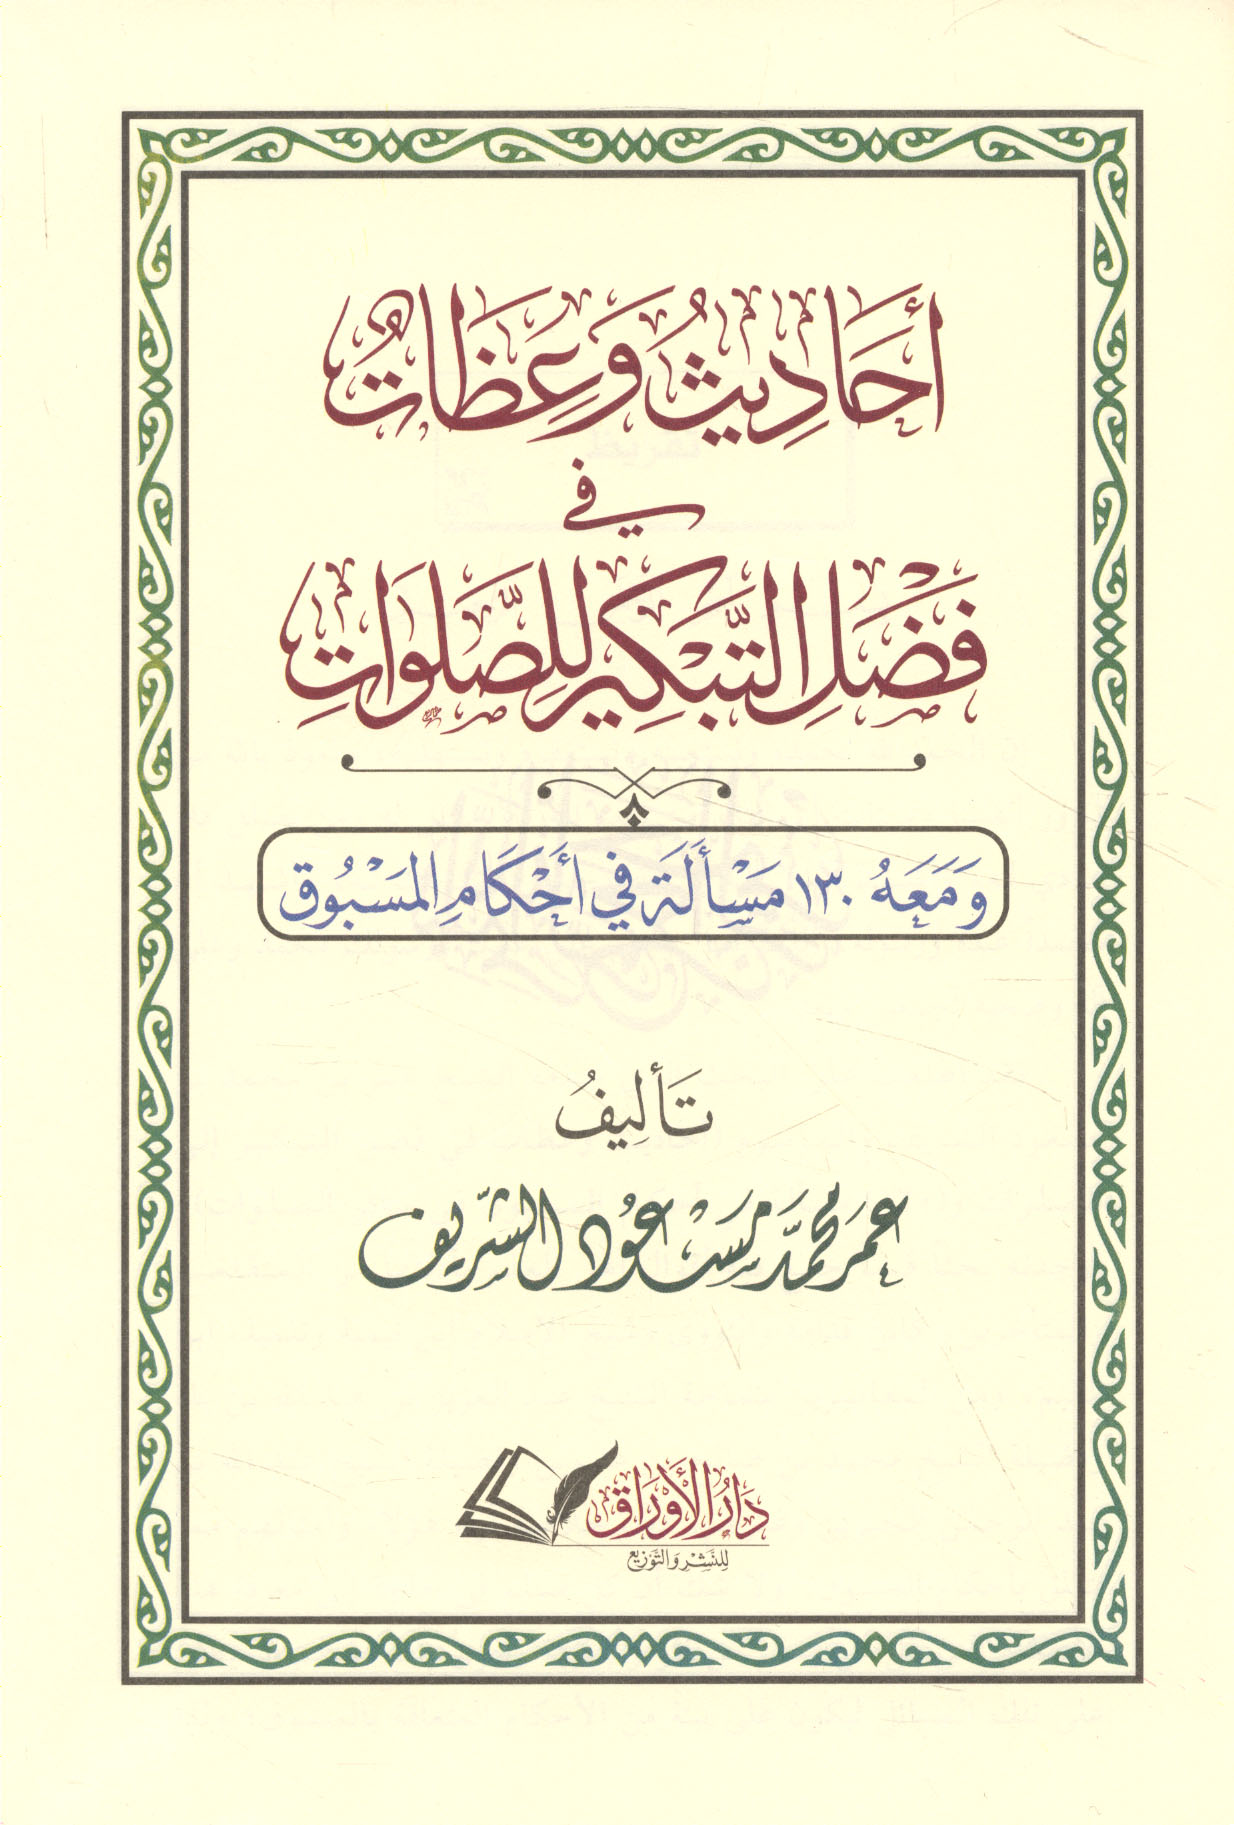 أَحَادِيثُ وَعِظَاتٌ
فِي
فَضْلِ التَّبْكِيرِ لِلصَّلَوَاتِ
وَمَعَهُ ١٣٠ مَسْأَلَة فِي أَحْكَامِ المَسْبُوق
تَأْلِيفُ
عمر محمّد مسعُود الشّريف
دَارُ الأَوْرَاق
لِلنَّشْرِ وَالتَّوْزِيع